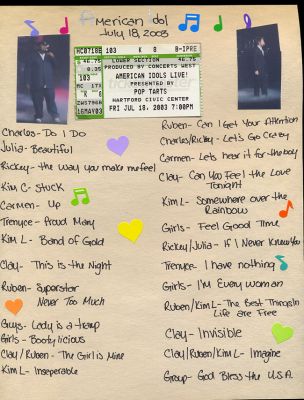 American Idol
July 18, 2003
MC0718E 103 K 8 B-IPRE
46.75 LOWER SECTION 46.75
0.35 PRODUCED BY CONCERTS WEST
103 AMERICAN IDOLS LIVE!
PRESENTED BY
POP TARTS
HARTFORD CIVIC CENTER
16MAY03 FRI JUL 18, 2003 7:00PM
Charles- Do I Do
Julia- Beautiful
Rickey- the way you make me feel
Kim C- Stuck
Carmen- Up
Trenyce- Proud Mary
Kim L- Band of Gold
Clay- This is the Night
Ruben- Superstar
Never Too Much
Guys- Lady is a tramp
Girls- Bootylicious
Clay/Ruben- The Girl is Mine
Kim L- Inseperable
Ruben- Can I Get Your Attention
Charles/Rickey- Let's Go Crazy
Carmen- Lets hear it for the boy
Clay- Can You Feel the Love
Tonight
Kim L- Somewhere over the
Rainbow
Girls- Feel Good Time
Rickey/Julia- If I Never Knew You
Trenyce- I have nothing
Girls- I'm Every Woman
Ruben/Kim L- The Best Things In
Life are Free
Clay- Invisible
Clay/Ruben/Kim L- Imagine
Group- God Bless the U.S.A.